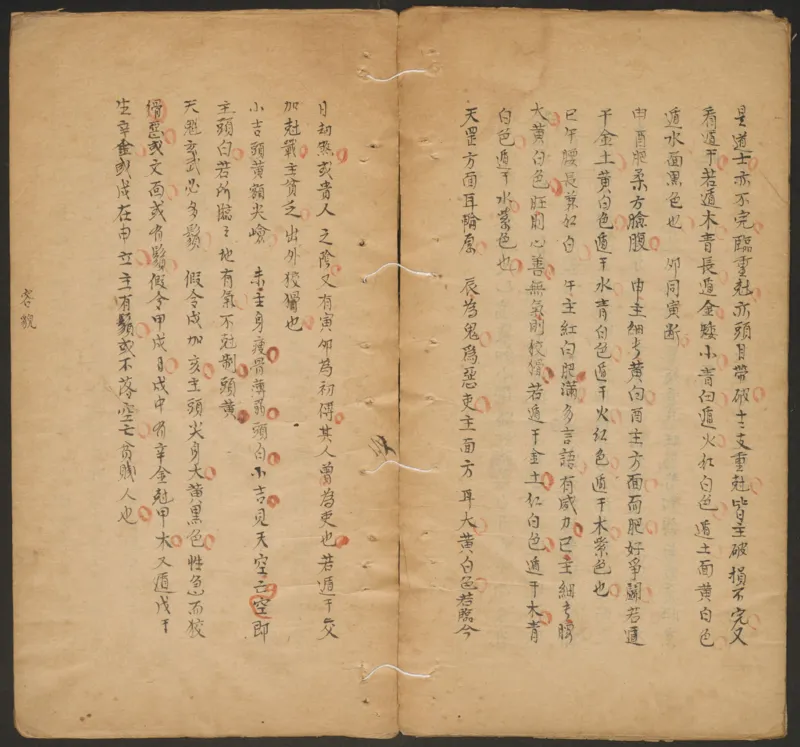 是道士亦不完臨重尅亦頭目帶破十二支重尅皆主破損不完又
看遁干若遁木青長遁金矮小青白遁火紅白色遁土面黃白色
遁水面黑色也 卯同寅断
申酉肥柔方臉腹 申主細長黃白酉主方面而肥好爭鬭若遁
干金土黃白色遁干水青白色遁干火紅色遁干木紫色也
巳午腰長兼紅白 午主紅白肥滿多言語有威力巳主細長腰
大黃白色旺則心善無氣則狡猾若遁干金土紅白色遁干木青
白色遁干水紫色也
天罡方面耳輪厚 辰為鬼為惡吏主面方耳大黃白色若臨今
日劫煞或貴人之陰又有寅卯為初傳其人曾為吏也若遁干交
加尅氣主貧乏出外狡猾也
小吉頭黃額尖嶮 未主身瘦骨薄弱頭白小吉見天空亡空即
主頭白若所臨之地有氣不尅制頭黃
天魁玄武必多鬚 假令戌加亥主頭尖身大黃黑色性急而狡
猾惡或文面或有鬚假令甲戌日戌中有辛金尅甲木又遁戊干
生辛金或戌在申立主有鬚或不落空亡貧賤人也
客貌